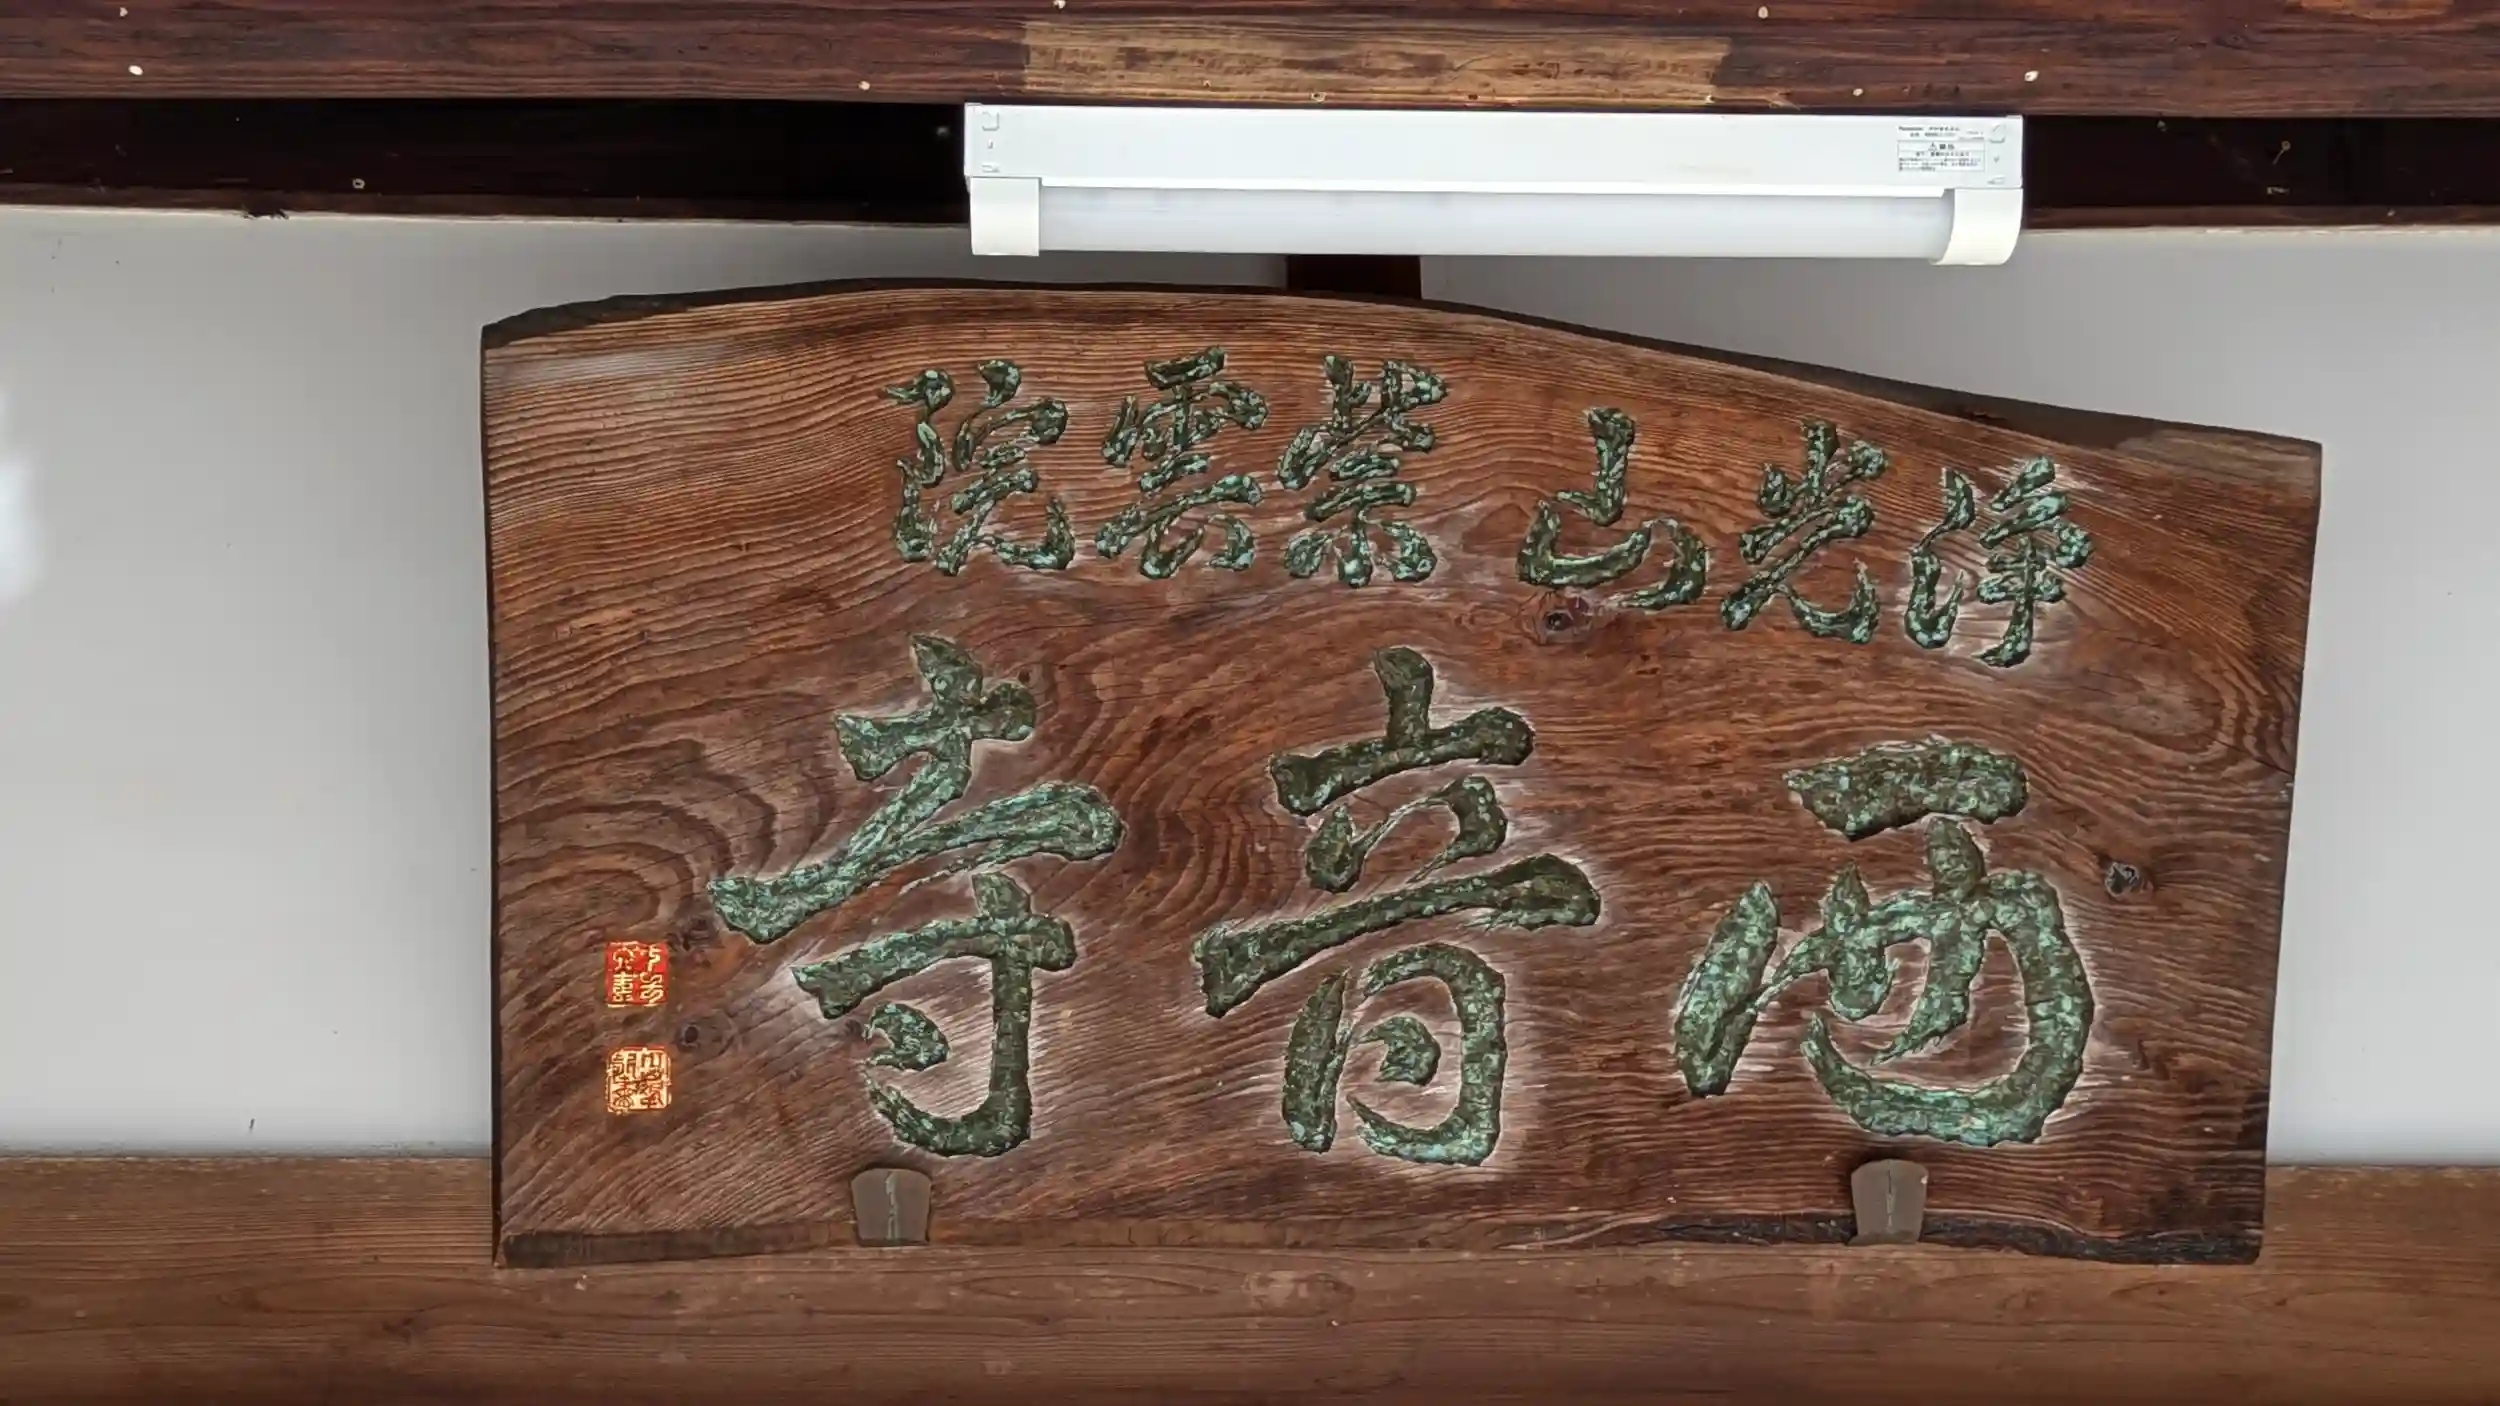 浄光山紫雲院
西音寺